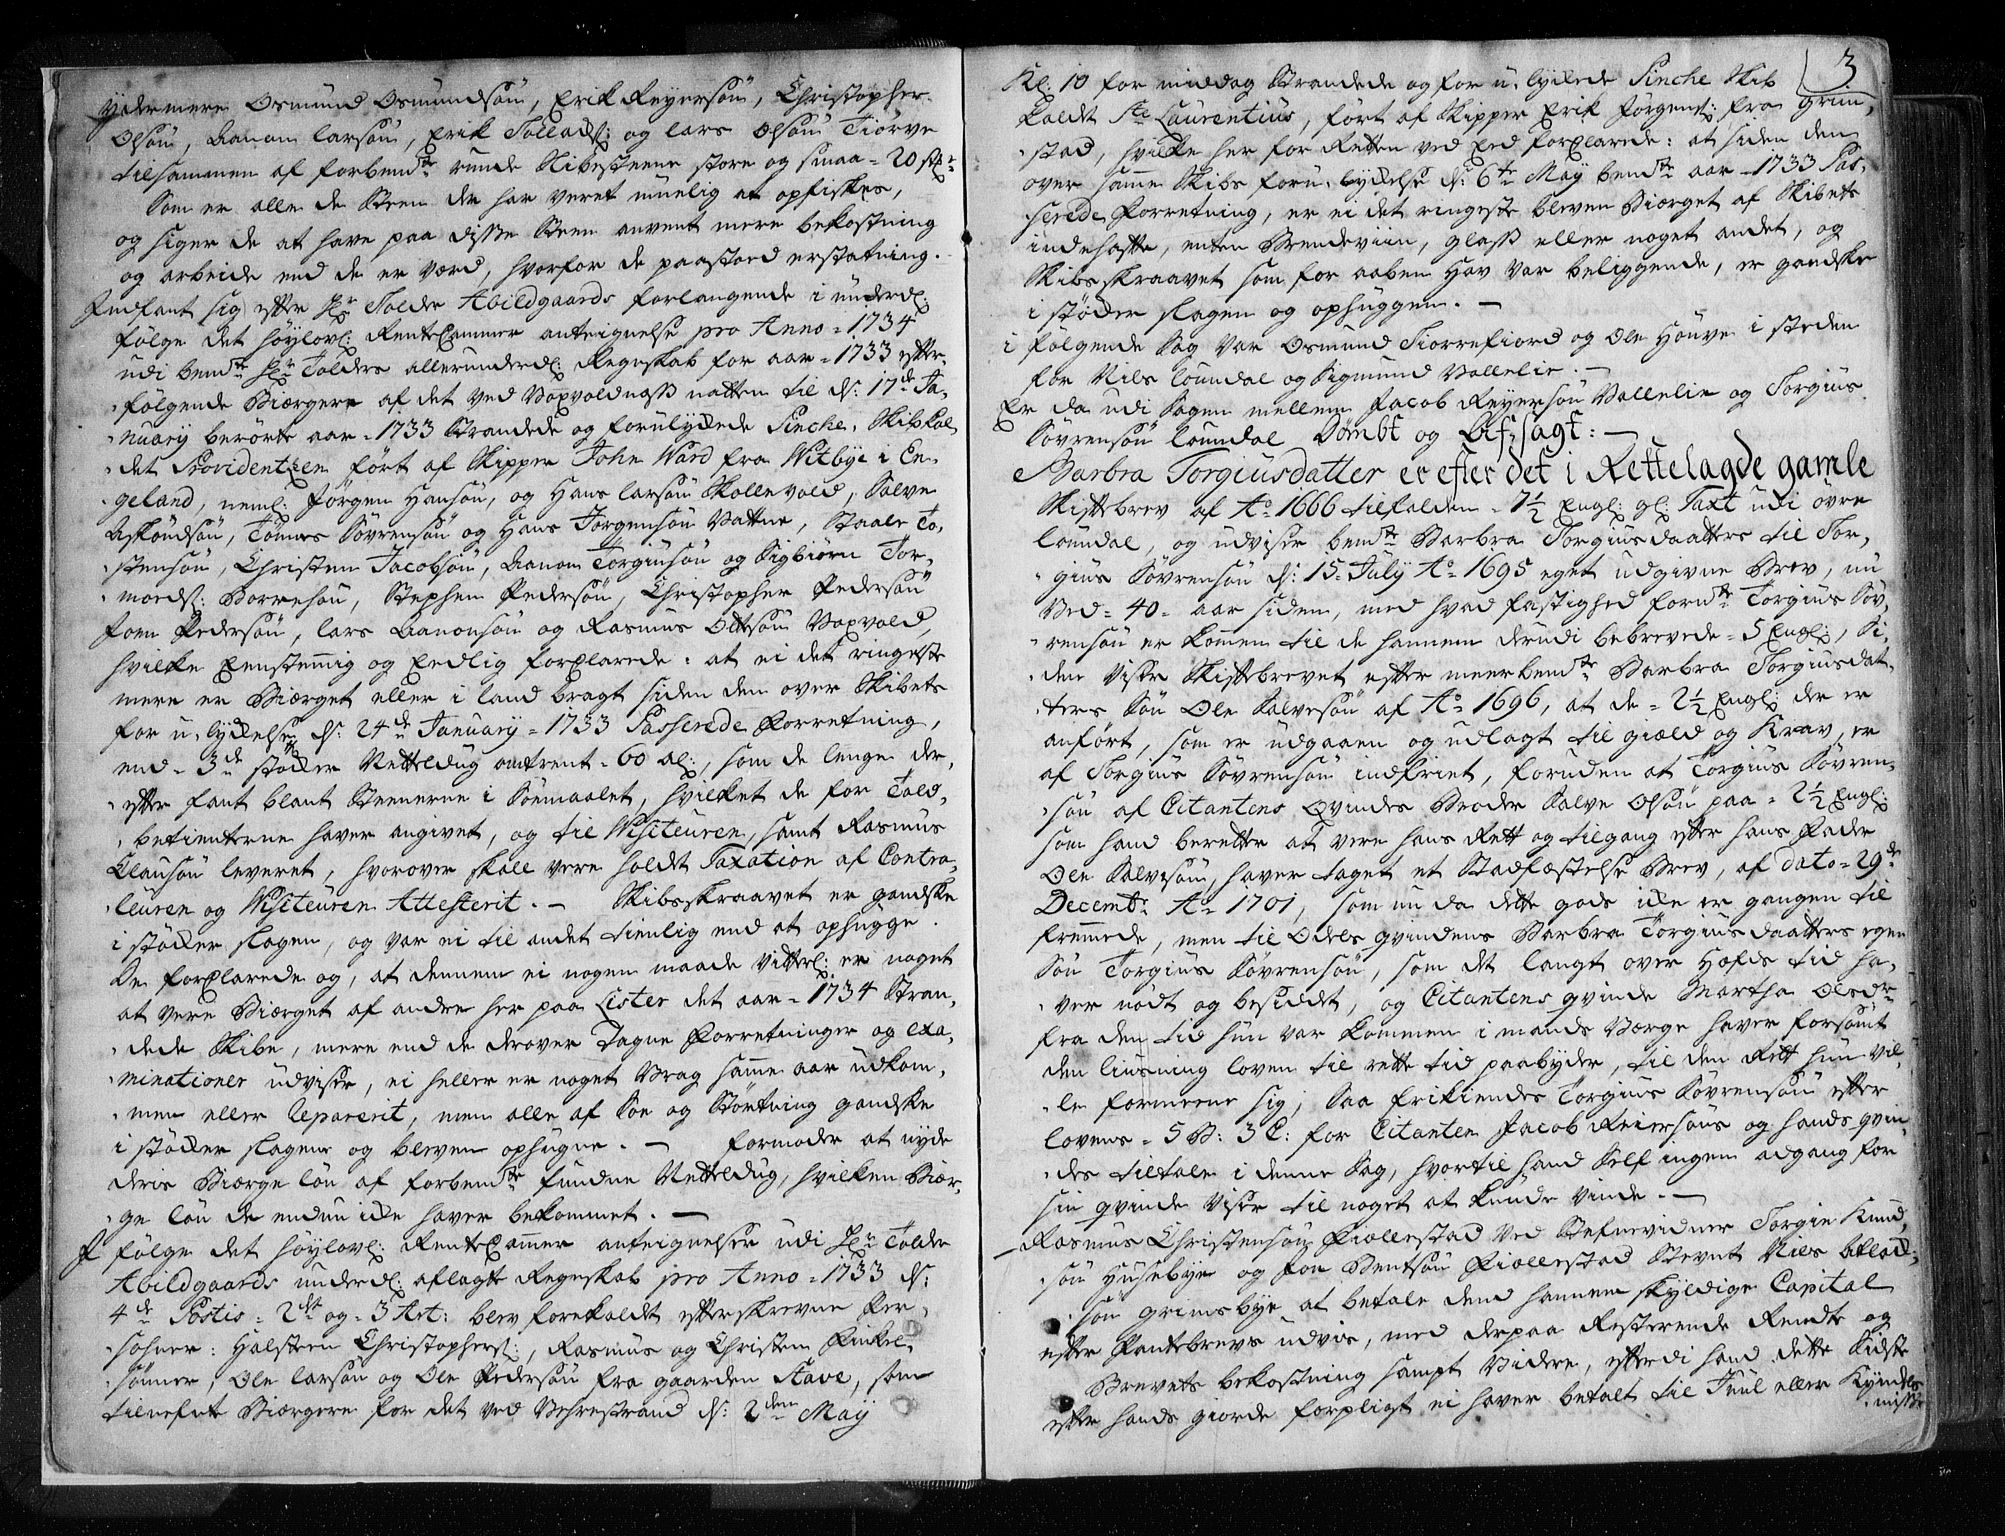 ydermere Osmund Osmundsøn, Erik Reyersøn, Christopher
Olsøn, Aanon Larsøn, Erik Tollads: og Lars Olsøn Tiørve
tilsammen af forbemte runde Skibesteene store og smaa = 20 stk:
Som er alle de Steen der har veret muelig at opfiskes,
og siger de at have paa disse Steen anvent mere bekostning
og arbeide end de er værd, hvorfor de paastoed erstatning.
Indfant sig efter Hr Tolder Abildgaards forlangende i underd:
følge det høylovl: RenteCammer anteignelse pro Anno = 1734
udi bemte Hr Tolders allerunderd: Regnskab for aar = 1733 efter
følgende Biærgere af det ved Vaxvoldnæss natten til d: 17de Ja-
nuary berørte aar = 1733 Strandede og forulykkede Pinche Skib kal
det Providentzen ført af Skipper John Ward fra Witbye i En-
geland, neml: Jørgen Hansøn, og Hans Larsøn Skollevold, Salve
Askoudsøn, Tomes Sövrensøn og Hans Jørgensøn Vattne, Staale To-
stensøn, Christen Jacobsøn, Aanon Torgiusøn og Sigbiørn Tor-
moeds: Borrehou, Stephen Pedersøn, Christopher Pedersøn
Joen Pedersøn, Lars Aanonsøn og Rasmus Oltsøn Vaxvold,
hvilke Eenstemig og Eedlig forClarede: at ei det ringeste
mere er Biærget eller i land bragt siden den over Skibets
for u-lykkelse d: 24de January = 1733 Passerede Forretning,
end = 3de støcker Netteldug omtrent = 60 al:, som de lenge der-
efter fant blant Steenerne i Søemaalet, hvilket de for Told-
betienterne haver angivet, og til Visiteuren, samt Rasmus
Clausøn leveret, hvorover skall vere holdt Taxation af Contra-
leuren og Visiteuren Attesterit. — Skibsskraavet er gandske
i støcker slagen, og var ei til andet tienlig end at ophugge.
De forClarede og, at dennem ei nogen maade vitterl: er noget
at vere Biærget af andre her paa Lister det aar = 1734 Stran-
dede Skibe, mere end de derover Tagne Forretninger og exa-
minationer udviser, ei heller er noget Vrag samme aar udkom-
men eller Reparerit, men alle af Søe og Størtning gandske
i støcker slagene og bleven ophugne. — formoder at nyde
deris Biærge løn af forbemte fundne Netteldug, hvilken Biær-
ge løn de endnu icke haver bekommet. —
J følge det høylovl: RenteCammer anteignelser udi Hr Tolder
Abildgaards underd: aflagte Regnskab pro Anno = 1733 d:
4de Postis = 2det og = 3 Art: blev forekaldt efterskrevne Per-
sohner: Halsteen Christophers:, Rasmus og Christen Finkel-
sønner, Ole Larsøn og Ole Pedersøn fra gaarden Stave, som
tilnefnte Biærgere for det ved Vehrestrand d: 2den May
3
Kl: 10 for middag Strandede og for u-lykkede Pinche Skib
kaldt Ste Laurentius, ført af Skipper Erik Jørgens: fra Grim-
stad, hvilke her for Retten ved Eed forClarede: at siden den
over samme Skibs foru-lykkelse d: 6te May bemte aar = 1733 Pas-
serede Forretning, er ei det ringeste bleven Biærget af Skibets
indehafte, enten Brendeviin, Glass eller noget andet, og
Skibsskraavet som for aaben Hav var beliggende, er gandske
i støcker slagen og ophuggen. —
i følgende Sag var Osmund Torrefiord og Ole Houve i steden
for Nils Loundal og Sigmund Vallelie. —
Er da udi Sagen mellem Jacob Reyersøn Vallelie og Torgius
Sövrensøn Loundal Dømbt og Afsagt: —
Barbra Torgiusdatter er efter det i Rettelagde gamle
Skiftebrev af Ao 1666 tilfalden = 7½ Engl: gl: Taxt udi øvre
Loundal, og udviser bemte Barbra Torgiusdaatters til Tor-
gius Sövrensøn d: 15 July Ao 1695 eget udgivne Brev, nu
ved = 40 = aar siden, med hvad fastighed fornte Torgius Söv-
rensøn er kommen til de hannem derudi bebrevede = 5 Engl:, Si-
den viser Skiftebrevet efter meerbemte Barbra Torgiusdat-
ters Søn Ole Salvesøn af Ao 1696, at de = 2½ Engl: der er
anført, som er udgaaen og udlagt til giæld og Krav, er
af Torgius Sövrensøn indfriet, foruden at Torgius Sövren-
søn af Citantens Qvindes Broder Salve Olsøn paa = 2½ Engl:
som hand beretter at vere hans Rett og tilgang efter hans Fader
Ole Salvesøn, haver taget et Stadfæstelse Brev, af dato = 29de
Decembr: Ao 1701, som nu da dette gods icke er gangen til
fremmede, men til Odels qvindens Barbra Torgiusdaatters egen
Søn Torgius Sövrensøn, som det langt over Hæfds tid ha-
ver nødt og besiddet, og Citantens qvinde Martha Olsdr
fra den tid hun var kommen i mands Værge haver forsømt
den liusning loven til rette tid paabyder, til den Rett hun vil-
le formeene sig, Saa frikiendes Torgius Sövrensøn efter
lovens = 5 B: 3 C: for Citanten Jacob Reiersøns og hands qvin-
des tiltale i denne Sag, hvortil hand Self ingen adgang for
sin qvinde viser til noget at kunde vinde. —
Rasmus Christensøn Fiællestad ved Stefnevidner Torgie Knud-
søn Husebye og Joen Bentsøn Fiællestad Stevnt Nils Aslack-
søn Grimsbye at betale dend hannem skyldige Capital
efter Pantebrevs udvis, med derpaa Resterende Rendte og
Brevets bekostning sampt Videre, efterdi hand dette Sidste
efter hands giorde forpligt ei haver betalt til Juul eller Kyndels
misse